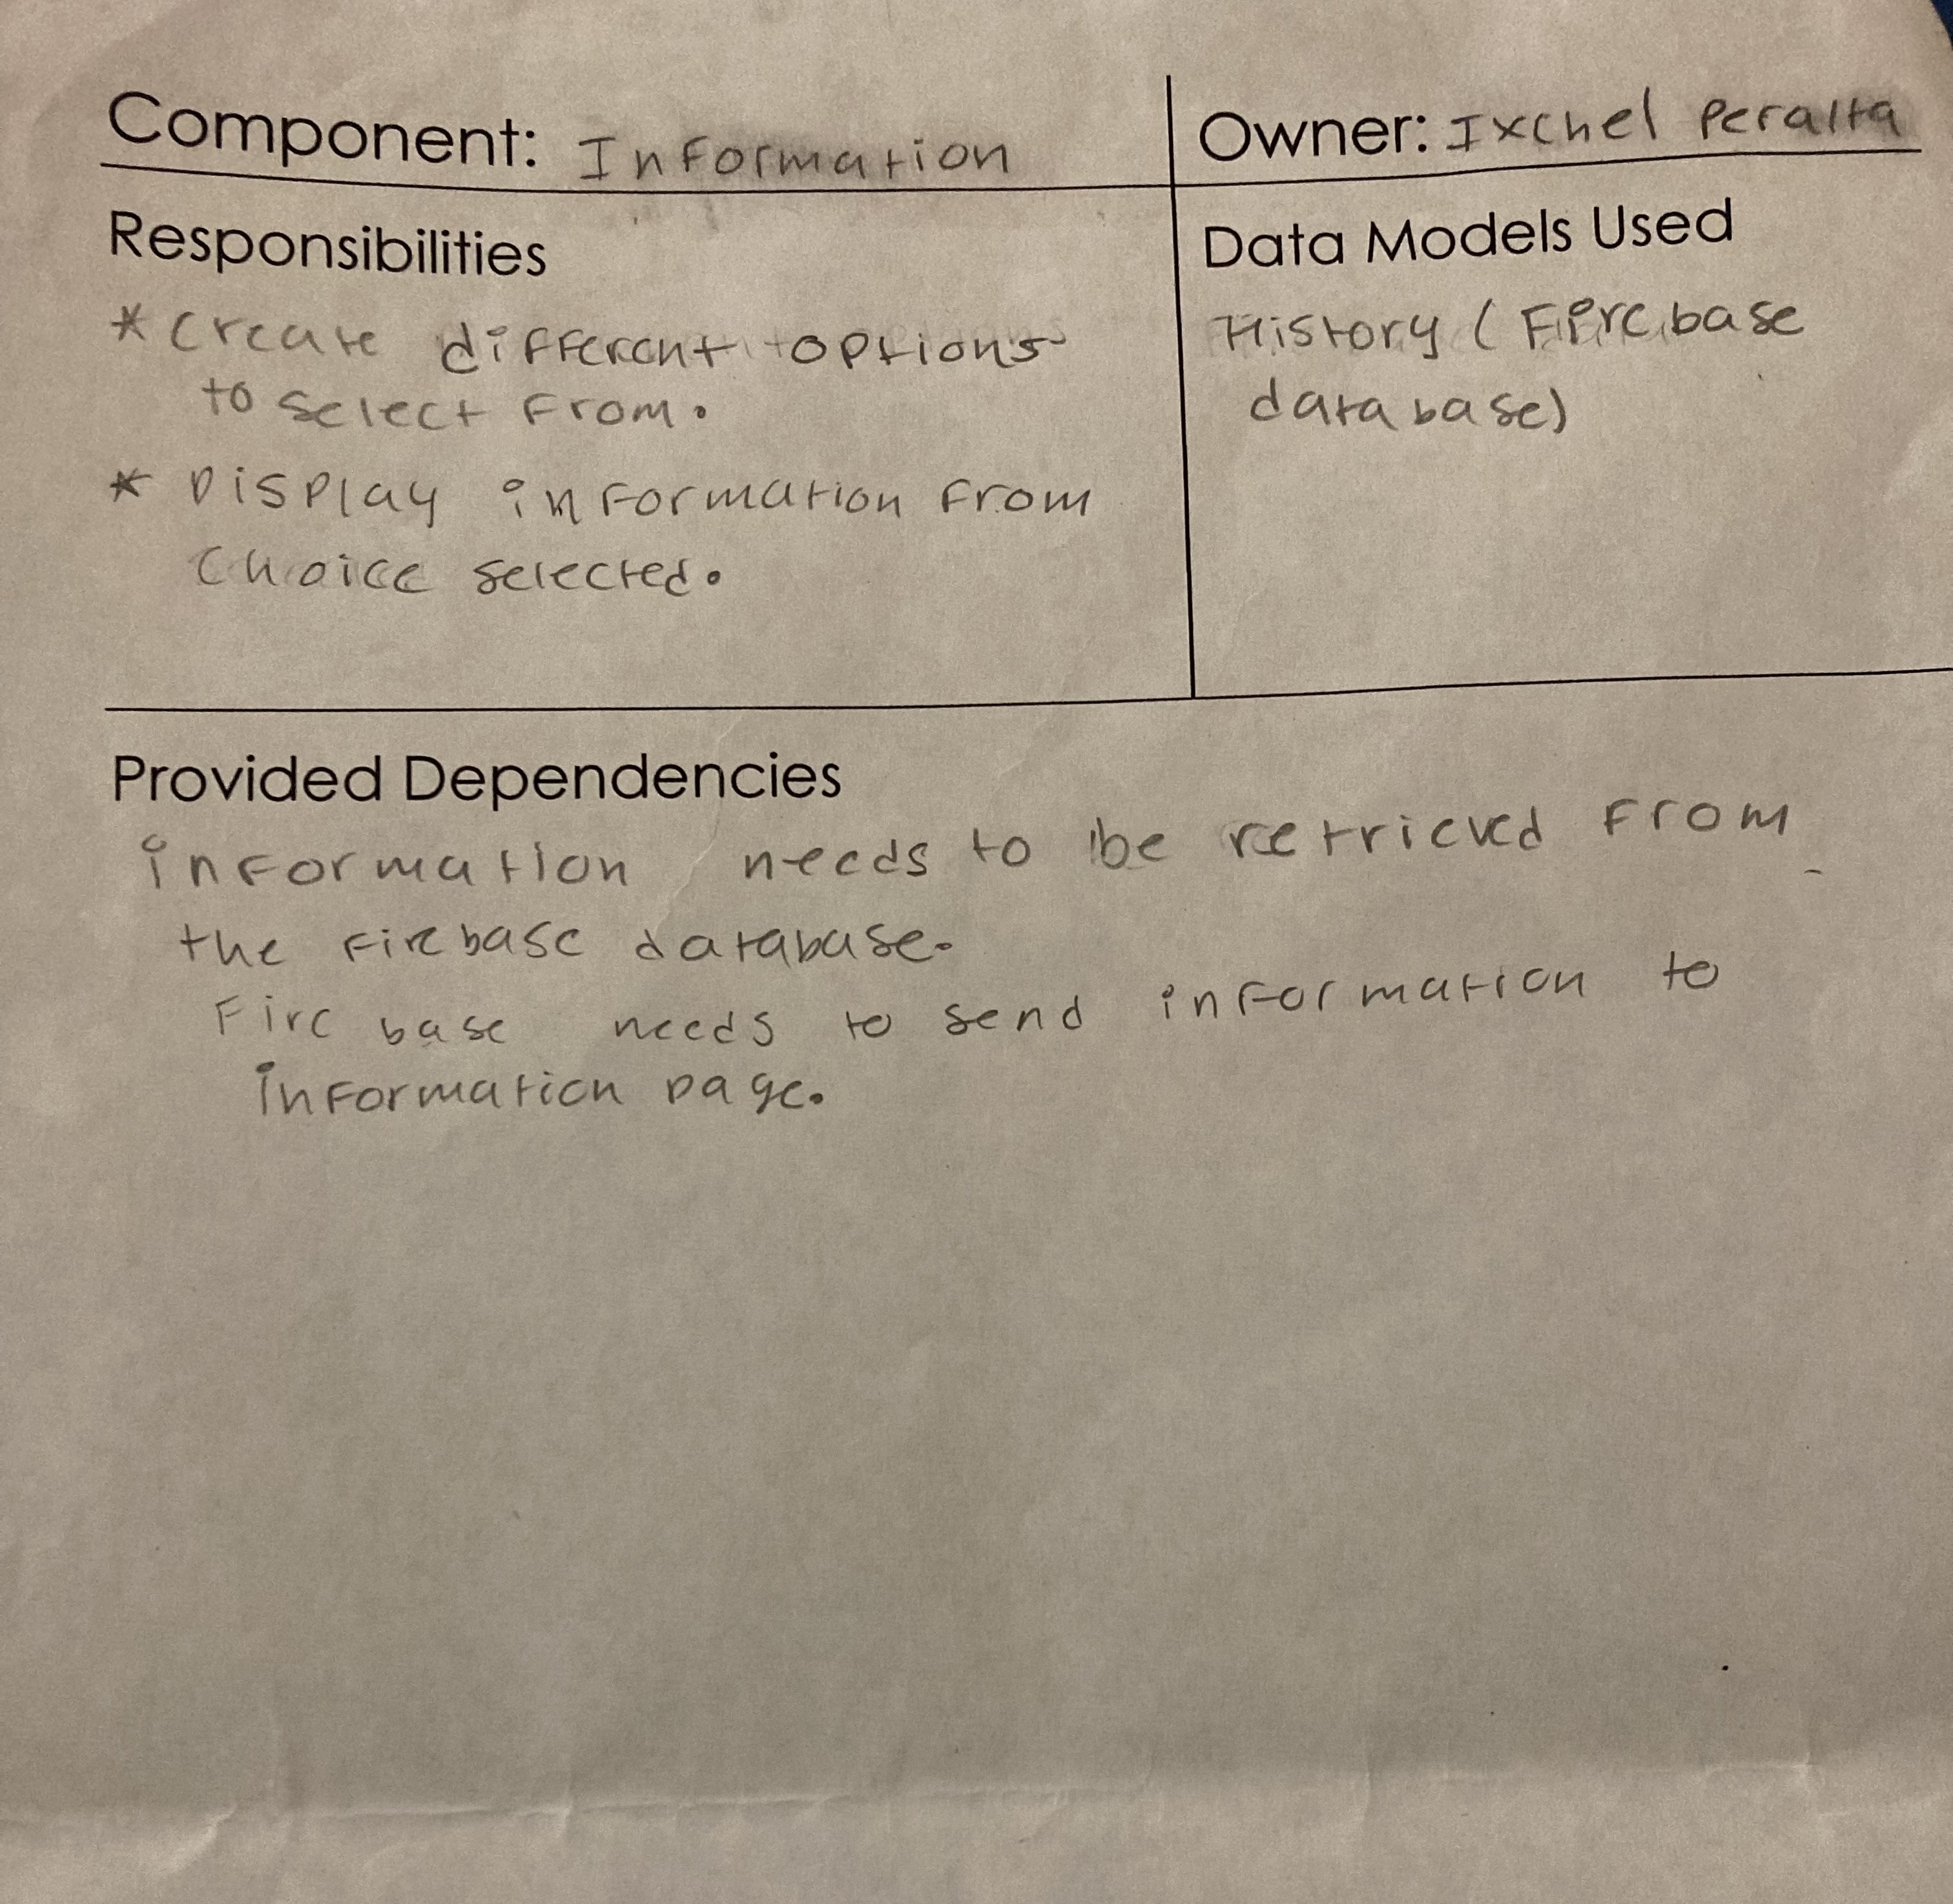 Component: Information
Owner: Ixchel Peralta
Responsibilities
* Create different options
to select from.
* Display information from
choice selected.
Data Models Used
History (Firebase
database)
Provided Dependencies
information needs to be retrieved from
the firebase database.
Fire base needs to send information to
information page.